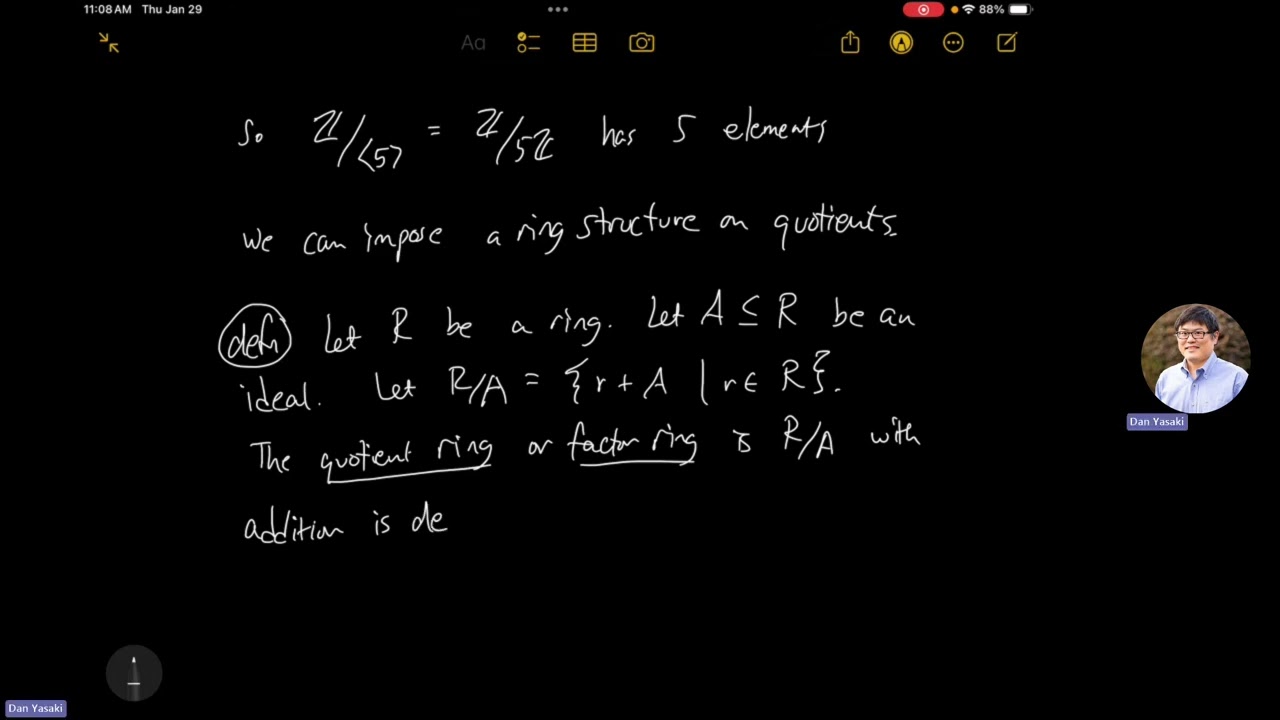 11:08 AM Thu Jan 29
88%
Aa
So ℤ/<5> = ℤ/5ℤ has 5 elements
We can impose a ring structure on quotients.
defn Let R be a ring. Let A ⊆ R be an
ideal. Let R/A = {r + A | r ∈ R}.
The quotient ring or factor ring is R/A with
addition is de
Dan Yasaki
Dan Yasaki